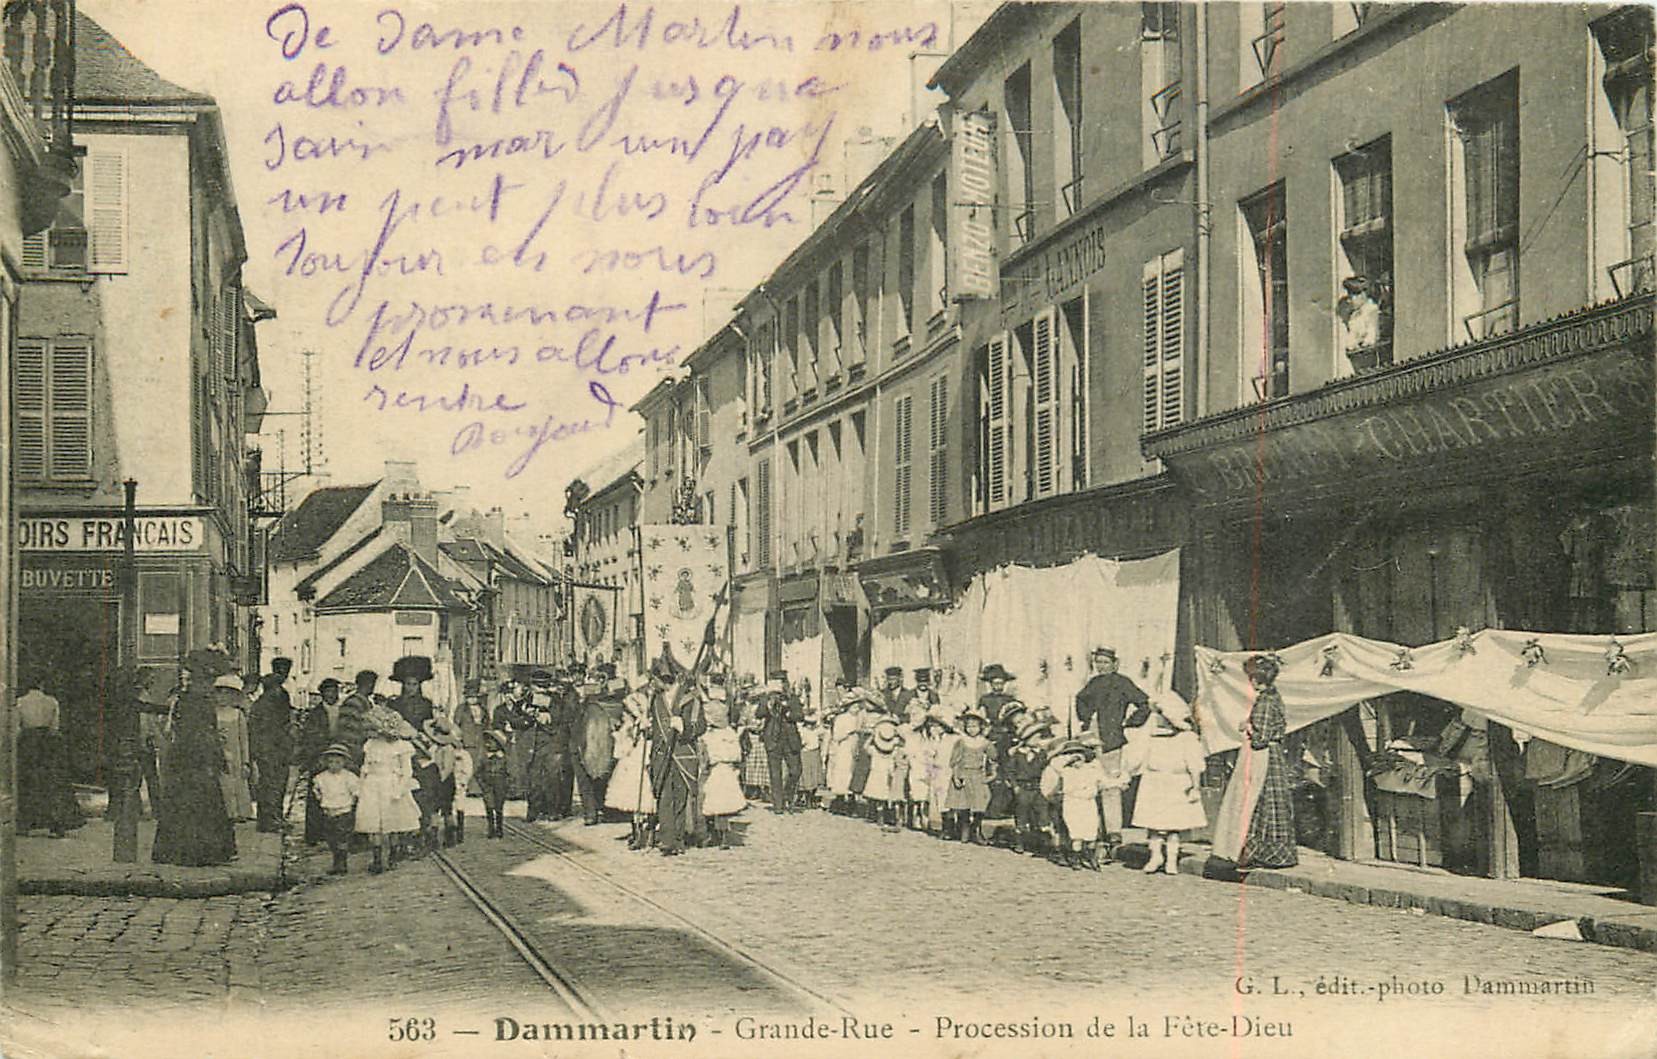 De Dame Martin nous
allon filler jusqua
sain mar un pay
un peut plus loin
toujour en nous
promenant
et nous allons
rentre
Bonjour
BENZO-MOTEUR
LANNOIS
CHARTIER
OIRS FRANÇAIS
BUVETTE
G. L., édit.-photo Dammartin
563 — Dammartin - Grande-Rue - Procession de la Fête-Dieu